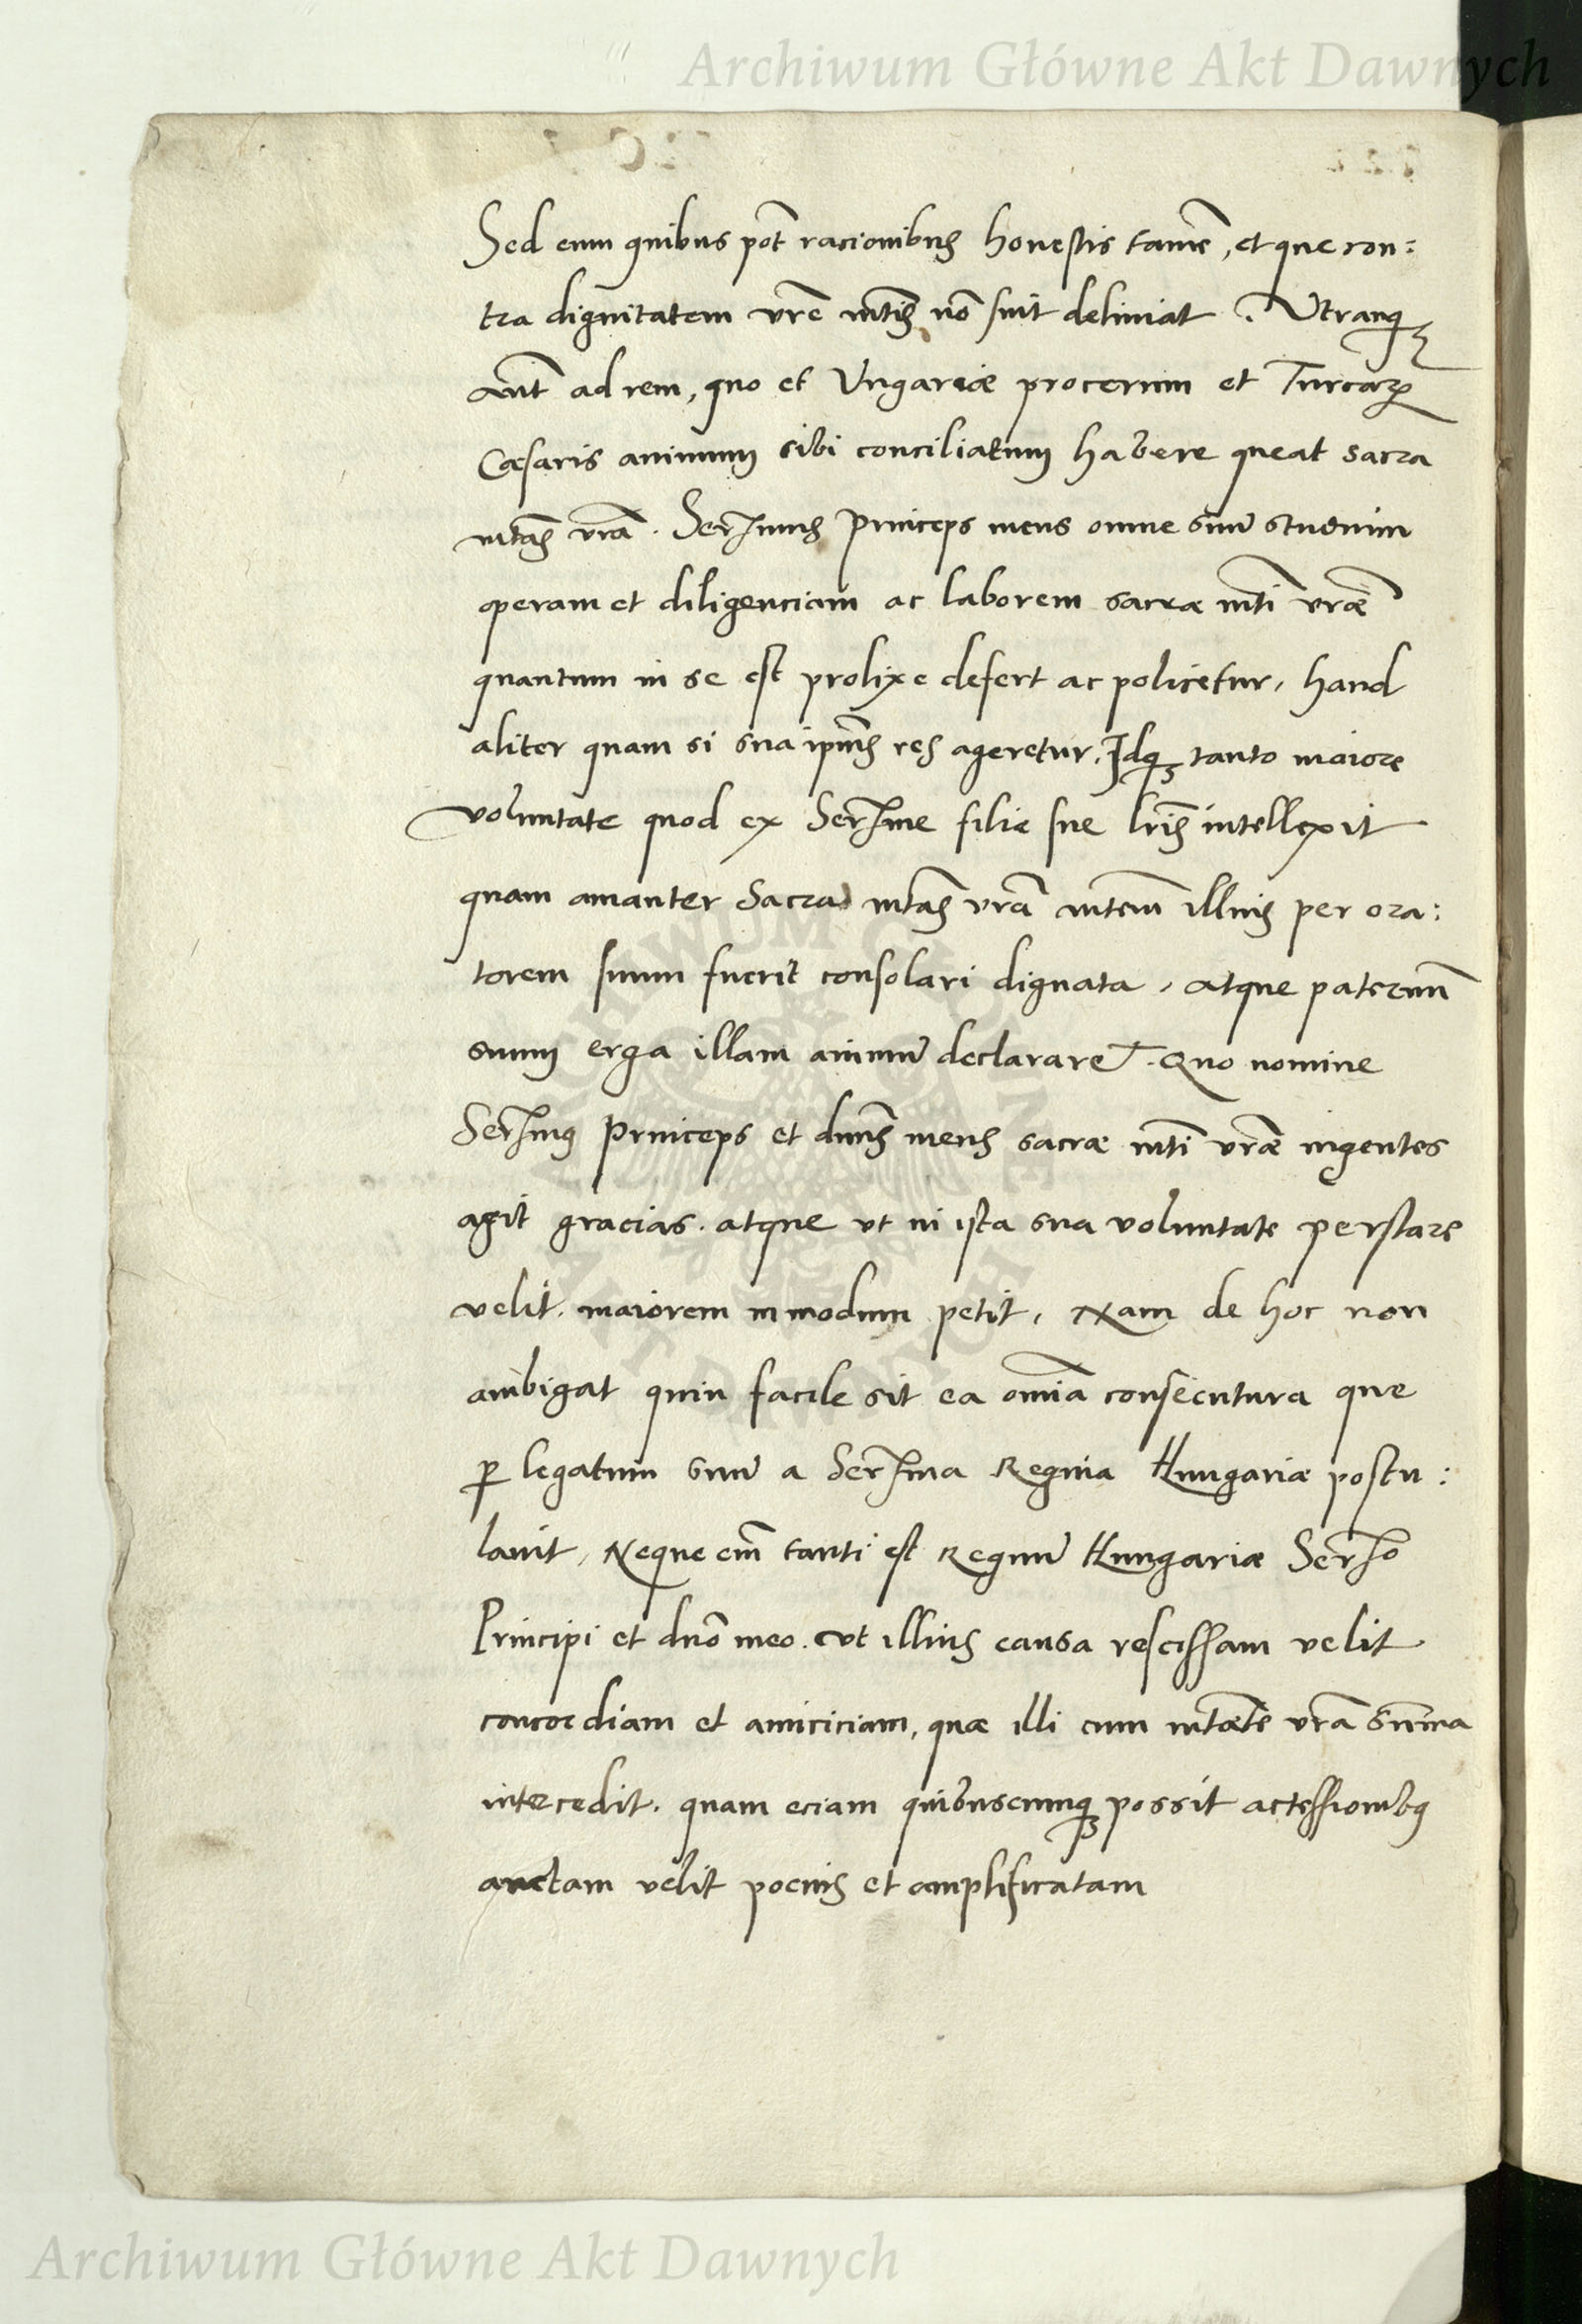 Archiwum Główne Akt Dawnych
Sed eum quibus põt racionibus honestis tamẽ, et que con:
tra dignitatem vrẽ mtis nõ sint deliniat. Utranq;
aũt ad rem, quo et Vngariæ procerum et Turcarꝝ
Cæsaris animum sibi conciliatum habere queat sacra
mtas vrã. Serᷤmus Princeps meus omne suũ studium
operam et diligenciam ac laborem sacræ mti vræ̃
quantum in se est prolixe defert ac policetur, haud
aliter quam si sua ipius res ageretur, Idq; tanto maiore
voluntate quod ex Serᷤme filie sue lris intellexit
quam amanter Sacra mtas vrã mtem illius per ora:
torem suum fuerit consolari dignata, atque paternũ
suum erga illam animũ declararet. Quo nomine
Serᷤmus Princeps et dnus meus sacræ mti vræ̃ ingentes
agit gracias. atque vt in ista sua voluntate perstare
velit. maiorem in modum petit, Nam de hoc non
ambigat quin facile sit ea omĩa consecutura que
ꝑ legatum suũ a Serᷤma Regina Hungariæ postu:
lauit, Neque em̃ tanti est Regnũ Hungariæ Serᷤo
Principi et dnõ meo. vt illius causa rescissam velit
concordiam et amiciciam, quæ illi cum mtate vrã sum̃a
intercedit. quam eciam quibuscumq; possit accessionibus
auctam velit pocius et amplificatam
ARCHIWUM GŁÓWNE
AKT DAWNYCH
Archiwum Główne Akt Dawnych